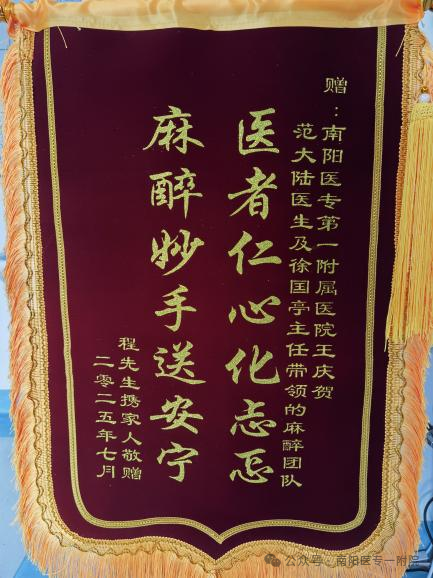 赠：南阳医专第一附属医院王庆贺
范大陆医生及徐国亭主任带领的麻醉团队
医者仁心化忐忑
麻醉妙手送安宁
程先生携家人敬赠
二零二五年七月
公众号 · 南阳医专一附院